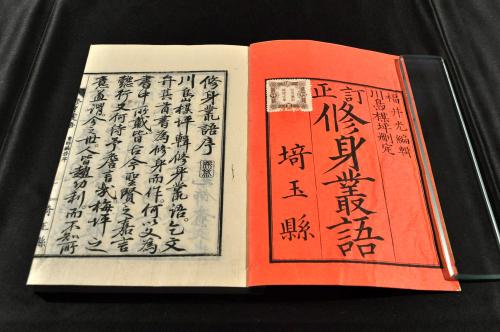 訂正
福井光編輯
川島楳坪刪定
修身叢語
埼玉縣
修身叢語序
川島楳坪輯修身叢語。乞文
弁其首。書為修身而作。何以文為
書中所載皆古今聖賢之嘉言
懿行。又何待予贅言哉。梅坪之
意蓋謂今之世人皆趨功利而不知所
埼玉縣